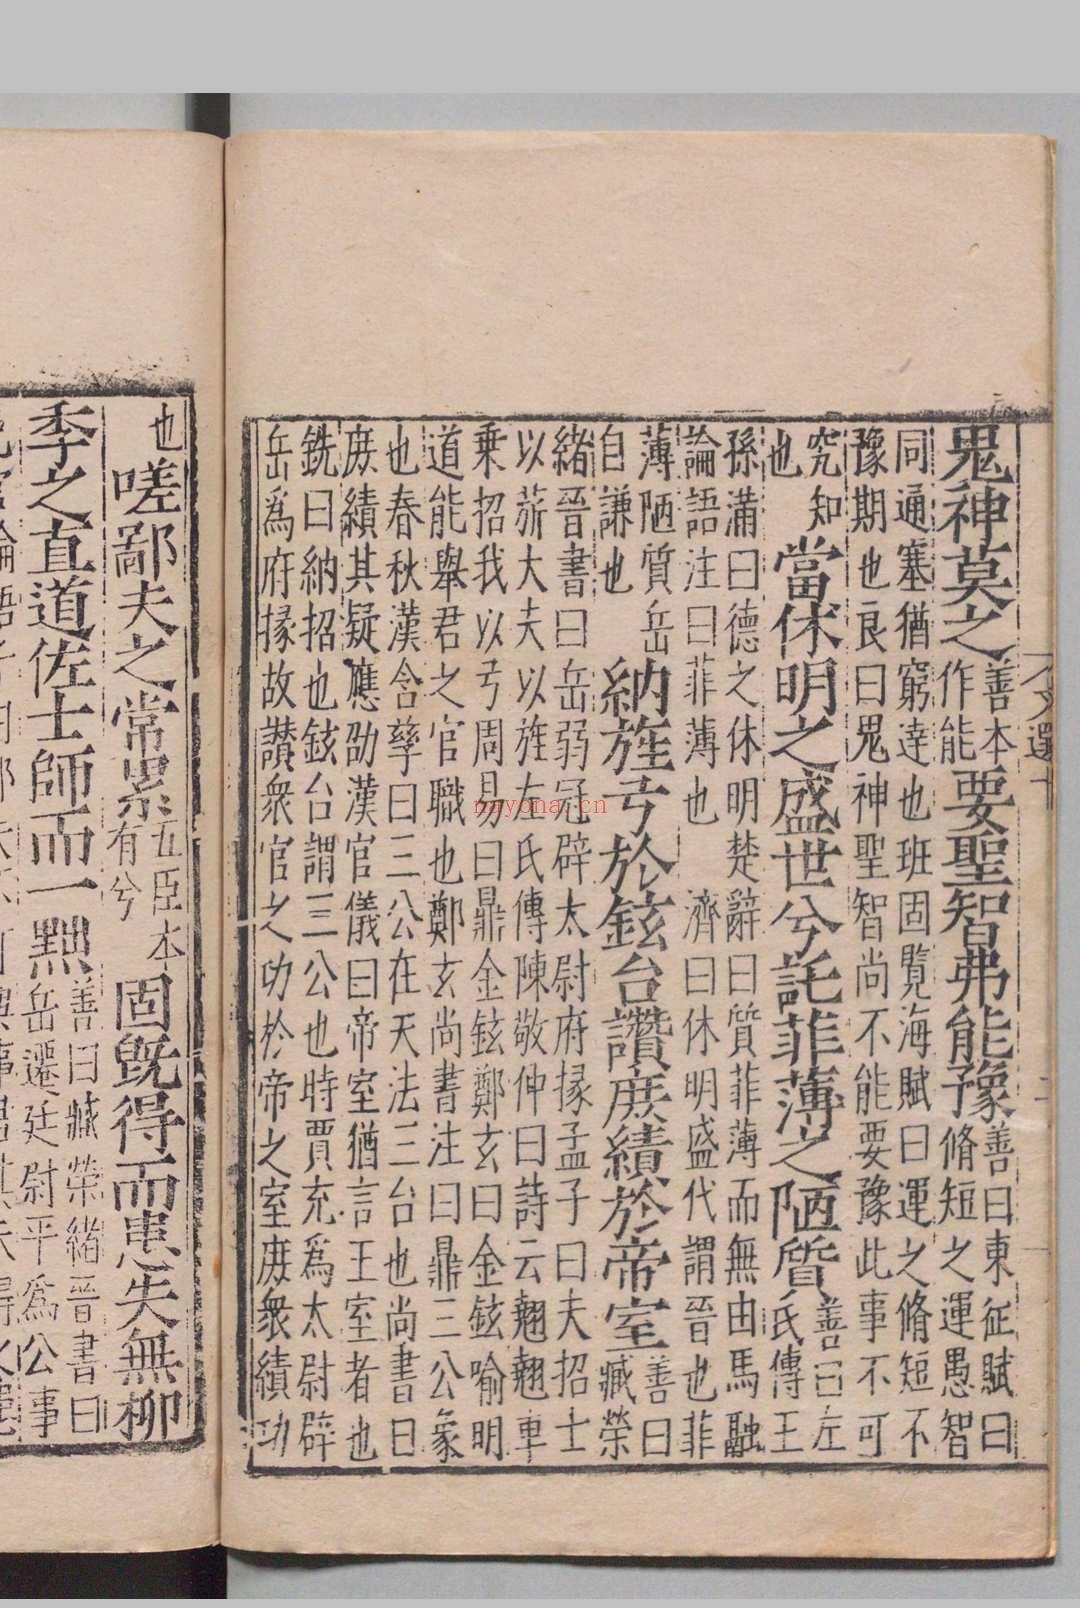 鬼神莫之善本作能要聖智弗能豫善曰東征賦曰脩短之運愚智
同通塞猶窮達也班固覽海賦曰運之脩短不
豫期也良曰鬼神聖智尚不能要豫此事不可
究知也當休明之盛世兮託菲薄之陋質善曰左氏傳王
孫滿曰德之休明楚辭曰質菲薄而無由馬融
論語注曰菲薄也 濟曰休明盛代謂晉也菲
薄陋質岳自謙也納旌弓於鉉台讚庶績於帝室善曰臧榮
緒晉書曰岳弱冠辟太尉府掾孟子曰夫招士
以旂大夫以旌左氏傳陳敬仲曰詩云翹翹車
乘招我以弓周易曰鼎金鉉鄭玄曰金鉉喻明
道能舉君之官職也鄭玄尚書注曰鼎三公象
也春秋漢含孳曰三公在天法三台也尚書曰
庶績其疑應劭漢官儀曰帝室猶言王室者也
銑曰納招也鉉台謂三公也時賈充爲太尉辟
岳爲府掾故讚衆官之功於帝之室庶衆績功
也嗟鄙夫之常累五臣本有兮固既得而患失無柳
季之直道佐士師而一黜善曰臧榮緒晉書曰岳遷廷尉平爲公事
nayona.cn